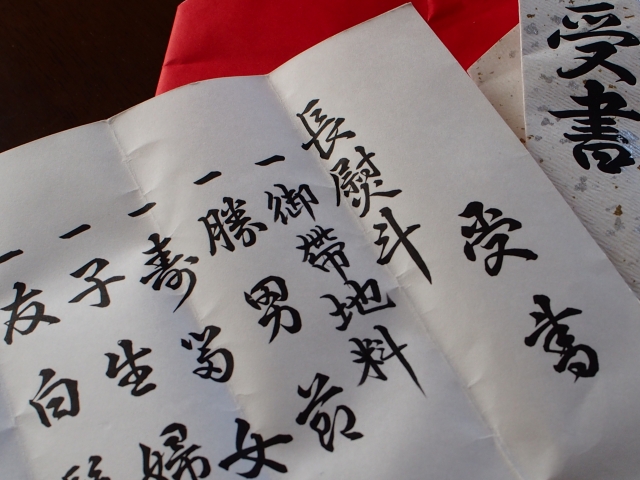 受書
受書
長熨斗
一 御帶地料
一 勝男節
一 寿留女
一 子生婦
一 友白